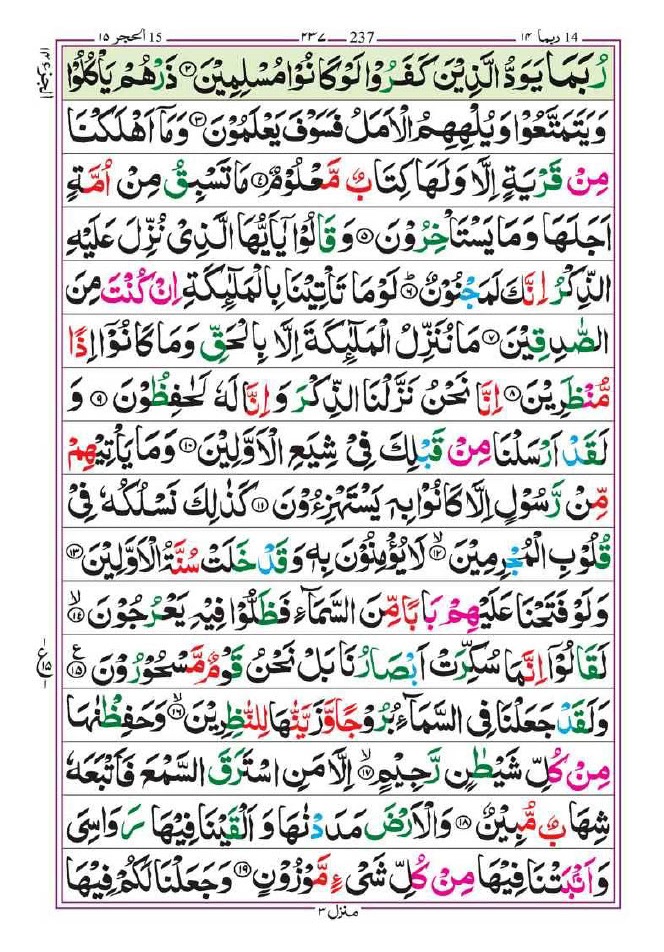 14 ربما ۱۴ 237 ۲۳۷ 15 الحجر ۱۵
رُبَمَا يَوَدُّ الَّذِيْنَ كَفَرُوْا لَوْ كَانُوْا مُسْلِمِيْنَ ۲ ذَرْهُمْ يَاْكُلُوْا
وَيَتَمَتَّعُوْا وَيُلْهِهِمُ الْاَمَلُ فَسَوْفَ يَعْلَمُوْنَ ۳ وَمَاۤ اَهْلَكْنَا
مِنْ قَرْيَةٍ اِلَّا وَلَهَا كِتَابٌ مَّعْلُوْمٌ ۴ مَا تَسْبِقُ مِنْ اُمَّةٍ
اَجَلَهَا وَمَا يَسْتَاْخِرُوْنَ ۵ وَقَالُوْا يٰۤاَيُّهَا الَّذِيْ نُزِّلَ عَلَيْهِ
الذِّكْرُ اِنَّكَ لَمَجْنُوْنٌ ۶ؕ لَوْمَا تَاْتِيْنَا بِالْمَلٰٓئِكَةِ اِنْ كُنْتَ مِنَ
الصّٰدِقِيْنَ ۷ مَا نُنَزِّلُ الْمَلٰٓئِكَةَ اِلَّا بِالْحَقِّ وَمَا كَانُوْۤا اِذًا
مُّنْظَرِيْنَ ۸ اِنَّا نَحْنُ نَزَّلْنَا الذِّكْرَ وَاِنَّا لَهٗ لَحٰفِظُوْنَ ۹ وَ
لَقَدْ اَرْسَلْنَا مِنْ قَبْلِكَ فِيْ شِيَعِ الْاَوَّلِيْنَ ۱۰ وَمَا يَاْتِيْهِمْ
مِّنْ رَّسُوْلٍ اِلَّا كَانُوْا بِهٖ يَسْتَهْزِءُوْنَ ۱۱ كَذٰلِكَ نَسْلُكُهٗ فِيْ
قُلُوْبِ الْمُجْرِمِيْنَ ۱۲ۙ لَا يُؤْمِنُوْنَ بِهٖ وَقَدْ خَلَتْ سُنَّةُ الْاَوَّلِيْنَ ۱۳
وَلَوْ فَتَحْنَا عَلَيْهِمْ بَابًا مِّنَ السَّمَآءِ فَظَلُّوْا فِيْهِ يَعْرُجُوْنَ ۱۴ۙ
لَقَالُوْۤا اِنَّمَا سُكِّرَتْ اَبْصَارُنَا بَلْ نَحْنُ قَوْمٌ مَّسْحُوْرُوْنَ ۱۵ ع
ع ۱۵
وَلَقَدْ جَعَلْنَا فِي السَّمَآءِ بُرُوْجًا وَّزَيَّنّٰهَا لِلنّٰظِرِيْنَ ۱۶ۙ وَحَفِظْنٰهَا
مِنْ كُلِّ شَيْطٰنٍ رَّجِيْمٍ ۱۷ۙ اِلَّا مَنِ اسْتَرَقَ السَّمْعَ فَاَتْبَعَهٗ
شِهَابٌ مُّبِيْنٌ ۱۸ وَالْاَرْضَ مَدَدْنٰهَا وَاَلْقَيْنَا فِيْهَا رَوَاسِيَ
وَاَنْۢبَتْنَا فِيْهَا مِنْ كُلِّ شَيْءٍ مَّوْزُوْنٍ ۱۹ وَجَعَلْنَا لَكُمْ فِيْهَا
منزل ۳